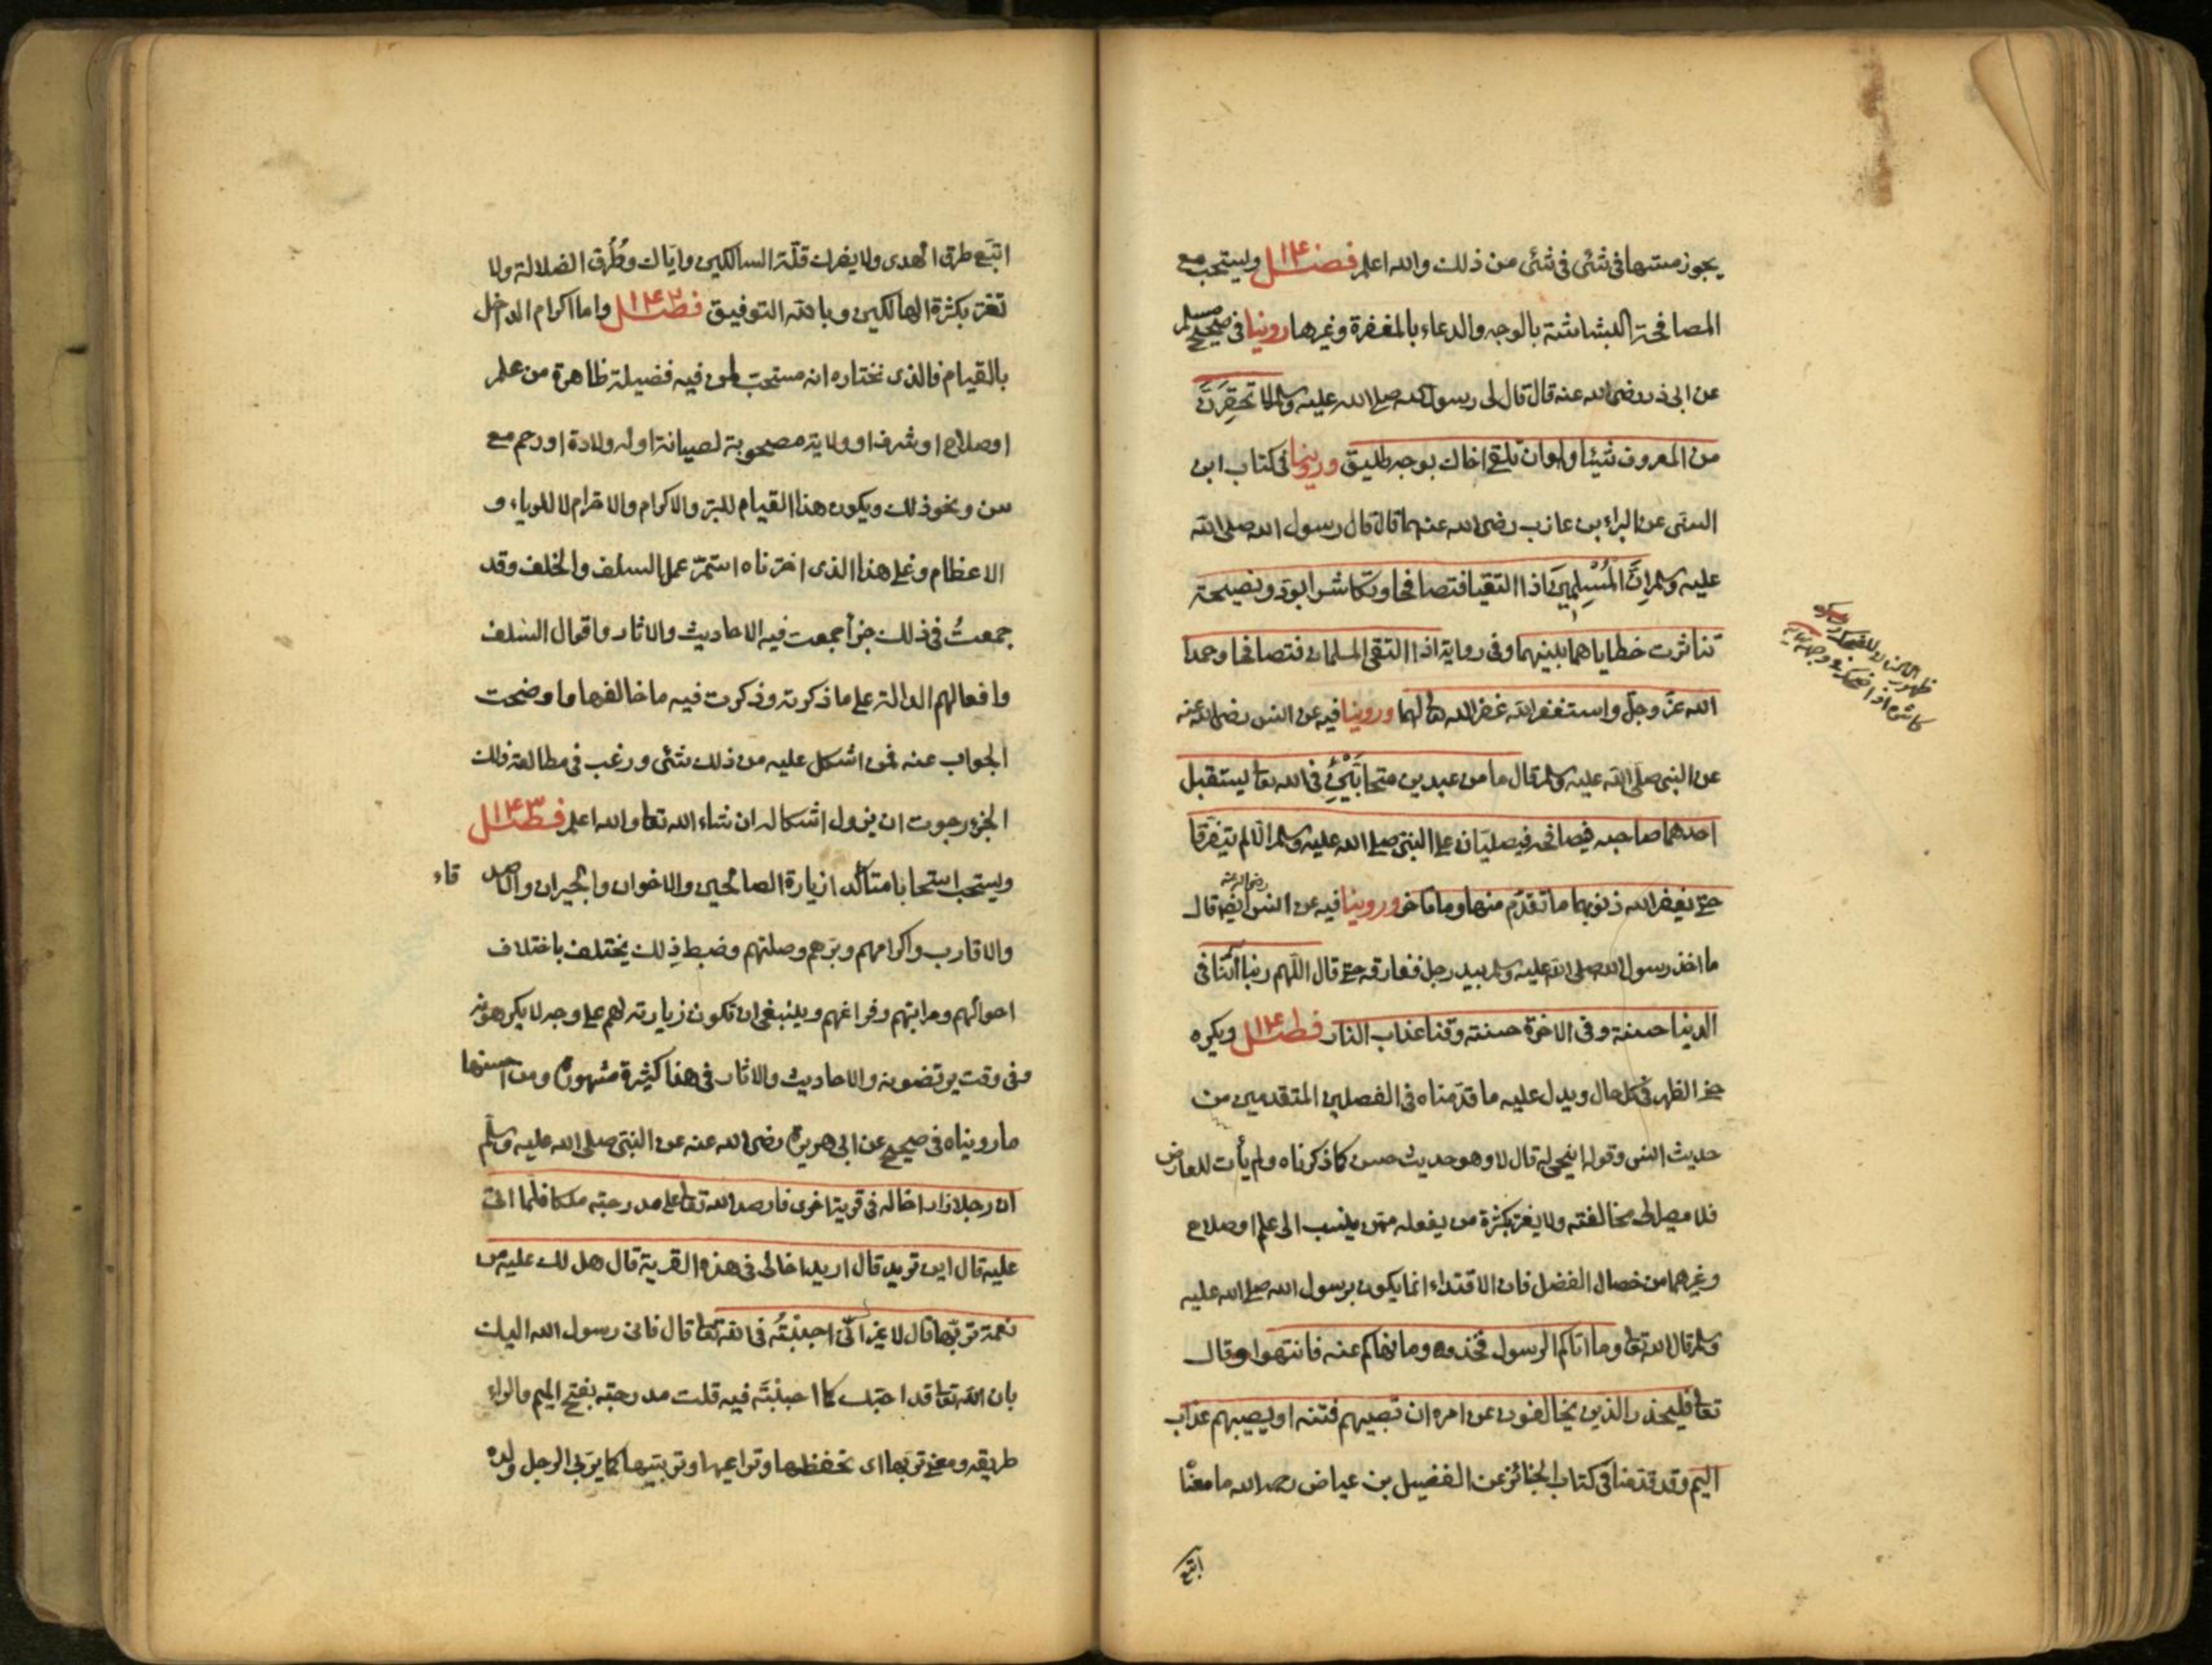 يجوز مسها فى شئى فى شئى من ذلك والله اعلم فصل ١٤٠ ويستحب مع
المصافحة البشاشة بالوجه والدعاء بالمغفرة وغيرها روينا فى صحيح مسلم
عن ابى ذر رضى الله عنه قال قال لى رسول الله صلى الله عليه وسلم لا تحقِرَنَّ
من المعروف شيئا ولو ان تلقى اخاك بوجه طليق وروينا فى كتاب ابن
السنى عن البراء بن عازب رضى الله عنهما قال قال رسول الله صلى الله
عليه وسلم اِنَّ المُسْلِمِيَنَ اذا التقيا فتصافحا وتكاشرا بود ونصيحة
تناثرت خطاياهما بينهما وفى رواية اذا التقى المسلمان فتصافحا وحمدا
الله عزّ وجلّ واستغفر الله غفر الله تعالى لهما وروينا فيه عن انس رضى الله عنه
عن النبى صلى الله عليه وسلم قال ما من عبدين متحابَّيْنِ فى الله تعا يستقبل
احدهما صاحبه فيصافحه فيصليان على النبى صلى الله عليه وسلم الا لم يتفرقا
حتى يغفر الله ذنوبهما ما تقدّم منها وما تاخر وروينا فيه عن انس رضى الله عنه ايضا قال
ما اخذ رسول الله صلى الله عليه وسلم بيد رجل ففارقه حتى قال اللّهم ربنا آتنا فى
الدنيا حسنة وفى الاخرة حسنة وقنا عذاب النار فصل ١٤١ ويكره
حنى الظهر فى كل حال ويدل عليه ما قدّمناه فى الفصلين المتقدمين من
حديث انس وقوله اينحنى له قال لا وهو حديث حسن كما ذكرناه ولم يأت له معارض
فلا مصير الى مخالفته ولا يغتر بكثرة من يفعله ممّن ينسب الى علم او صلاح
وغيرهما من خصال الفضل فان الاقتداء انما يكون برسول الله صلى الله عليه
وسلم قال الله تعا وما اتاكم الرسول فخذوه وما نهاكم عنه فانتهوا وقال
تعا فليحذر الذين يخالفون عن امره ان تصيبهم فتنه او يصيبهم عذاب
اليم وقد قدّمنا فى كتاب الجنائز عن الفضيل بن عياض رحمه الله ما معناه
اتبع
اتبع طرق الهدى ولا يضرك قلّة السالكين وايّاك وطُرُق الضلالة ولا
تغتر بكثرة الهالكين وبالله التوفيق فصل ١٤٢ واما اكرام الداخل
بالقيام فالذى نختاره انه مستحبّ لمن فيه فضيلة ظاهرة من علم
او صلاح او شرف او ولاية مصحوبة لصيانة او له ولادة او رحم مع
سن ونحو ذلك ويكون هذا القيام للبرّ والاكرام والاحترام لا للرياء و
الاعظام وعلى هذا الذى اخترناه استمرّ عمل السلف والخلف وقد
جمعتُ فى ذلك جزأ جمعت فيه الاحاديث والاثار واقوال السلف
وافعالهم الدالة على ما ذكرته وذكرت فيه ما خالفها واوضحت
الجواب عنه فمن اشكل عليه من ذلك شئى ورغب فى مطالعة ذلك
الجزء رجوت ان يزول اشكاله ان شاء الله تعا والله اعلم فصل ١٤٣
ويستحب استحبابا متأكدا زيارة الصالحين والاخوان والجيران والاصد قاء
والاقارب واكرامهم وبرّهم وصلتهم وضبط ذلك يختلف باختلاف
احوالهم ومراتبهم وفراغهم وينبغى ان تكون زيارته لهم على وجه لا يكرهونه
وفى وقت يرتضونه والاحاديث والاثار فى هذا كثيرة مشهورة ومن احسنها
ما رويناه فى صحيح عن ابى هريرة رضى الله عنه عن النبى صلى الله عليه وسلم
ان رجلا زار اخا له فى قرية اخرى فارصد الله تعا على مدرجته ملكا فلما اتى
عليه قال اين تريد قال اريد اخا لى فى هذه القرية قال هل لك عليه من
نعمة تربّها قال لا غير انّى احببتُه فى الله تعا قال فانى رسول الله اليك
بان الله تعا قد احبّك كما احببتَه فيه قلت مدرجته بفتح الميم والراء
طريقه ومعنى تربّها اى تحفظها وتراعيها وتربيها كما يربى الرجل ولده